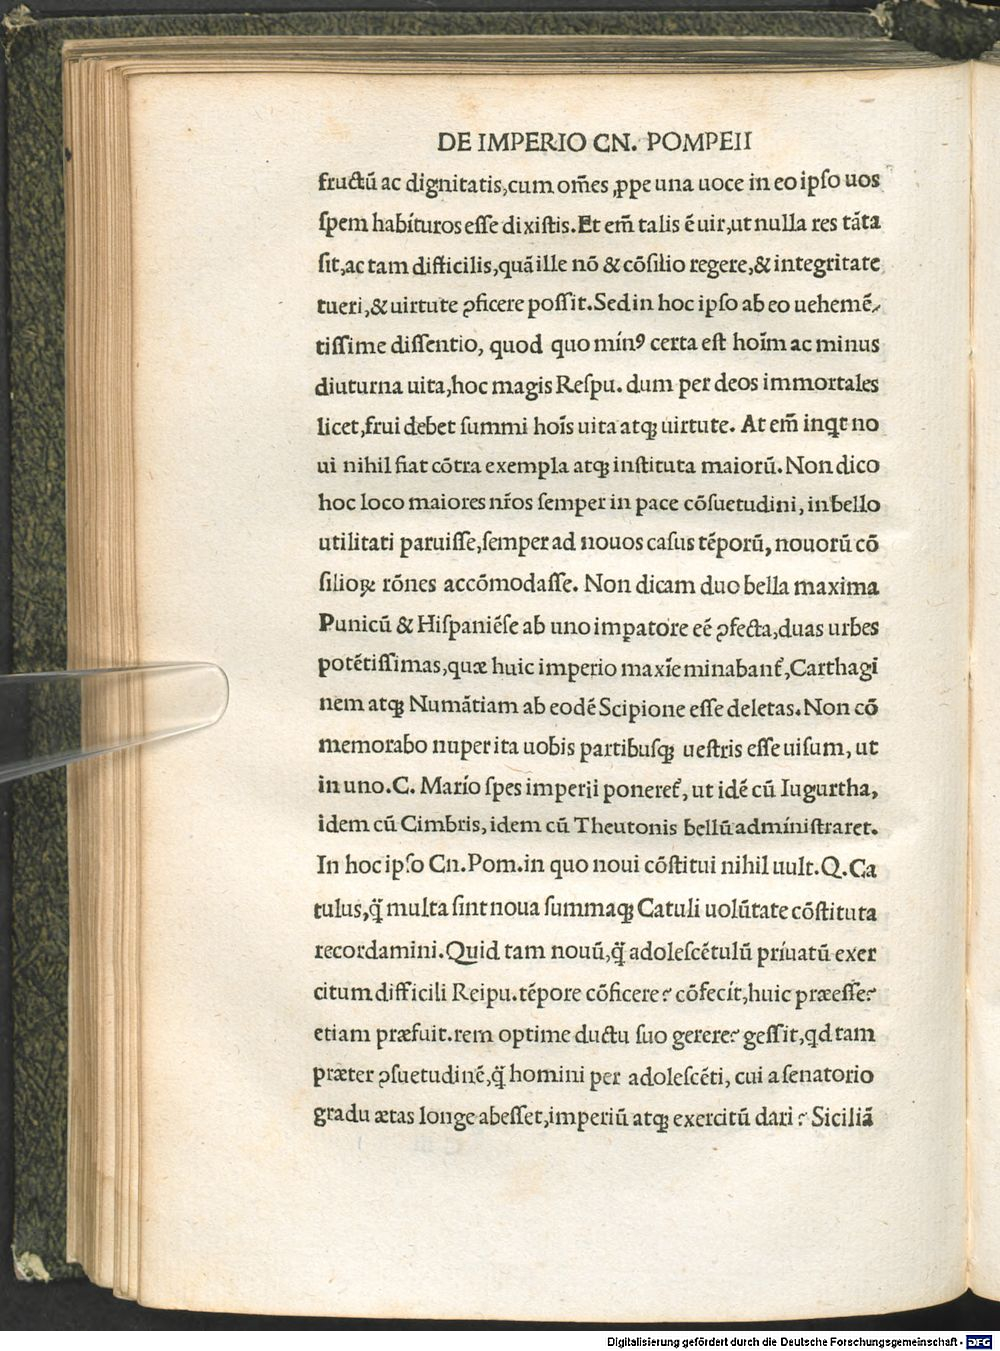 DE IMPERIO CN. POMPEII
fructū ac dignitatis,cum om̄es ꝓpe una uoce in eo ipſo uos
ſpem habituros eſſe dixiſtis.Et em̄ talis ē uir,ut nulla res tāta
ſit,ac tam difficilis,quā ille nō & cōſilio regere,& integritate
tueri,& uirtute ꝓficere poſſit.Sed in hoc ipſo ab eo uehemē⸗
tiſſime diſſentio, quod quo minꝰ certa eſt hoīm ac minus
diuturna uita,hoc magis Reſpu. dum per deos immortales
licet,frui debet ſummi hoīs uita atqꝫ uirtute. At em̄ inqt no
ui nihil fiat cōtra exempla atqꝫ inſtituta maiorū. Non dico
hoc loco maiores nr̄os ſemper in pace cōſuetudini, in bello
utilitati paruiſſe,ſemper ad nouos caſus tēporū, nouorū cō
ſilioꝝ rōnes accōmodaſſe. Non dicam duo bella maxima
Punicū & Hiſpaniēſe ab uno imꝑatore eē ꝯfecta,duas urbes
potētiſſimas,quæ huic imperio maxīe minabant᷑,Carthagi
nem atqꝫ Numātiam ab eodē Scipione eſſe deletas.Non cō
memorabo nuper ita uobis partibuſqꝫ ueſtris eſſe uiſum, ut
in uno.C. Mario ſpes imperii poneret᷑, ut idē cū Iugurtha,
idem cū Cimbris, idem cū Theutonis bellū adminiſtraret.
In hoc ipſo Cn.Pom.in quo noui cōſtitui nihil uult.Q. Ca
tulus,q̄ multa ſint noua ſummaqꝫ Catuli uolūtate cōſtituta
recordamini.Quid tam nouū,q̄ adoleſcētulū priuatū exer
citum difficili Reipu.tēpore cōficere? cōfecit,huic præeſſe?
etiam præfuit.rem optime ductu ſuo gerere? geſſit,qd tam
præter ꝯſuetudinē,q̄ homini per adoleſcēti, cui a ſenatorio
gradu ætas longe abeſſet,imperiū atqꝫ exercitū dari? Siciliā
Digitalisierung gefördert durch die Deutsche Forschungsgemeinschaft - DFG